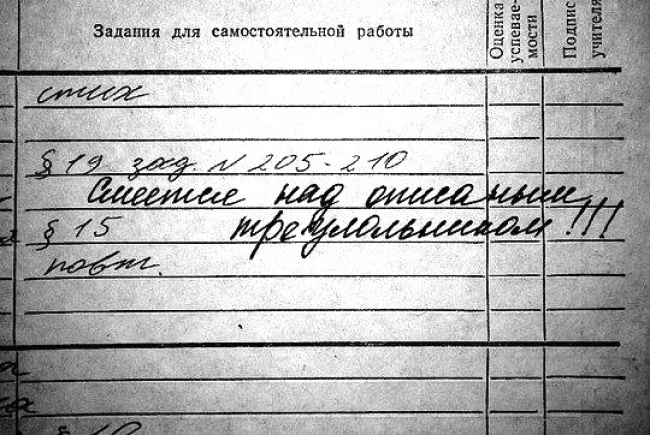 Задания для самостоятельной работы
Оценка успеваемости
Подпис учителя
стих
§ 19 зад. N 205-210
Смеется над описаным
§ 15 треугольником!!!
повт.